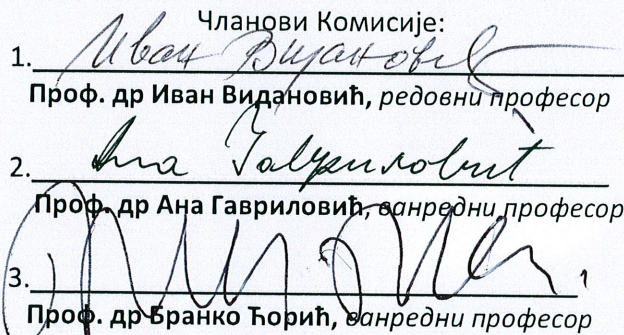 Чланови Комисије:
1. Иван Видановић
Проф. др Иван Видановић, редовни професор
2. Ана Гавриловић
Проф. др Ана Гавриловић, ванредни професор
3.
Проф. др Бранко Ћорић, ванредни професор